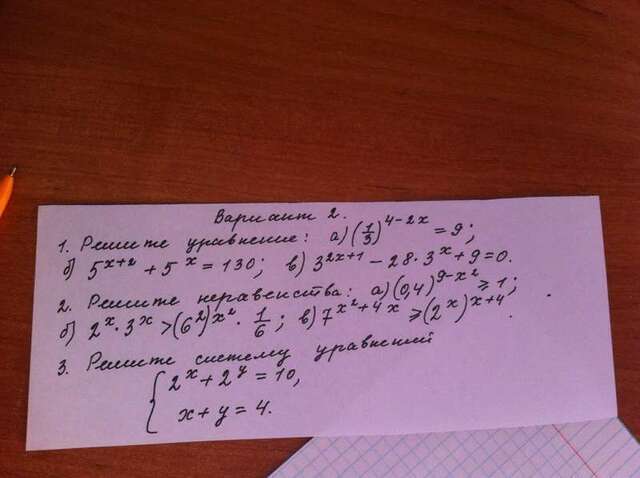 Вариант 2.
1. Решите уравнение: а) (1/3)^(4-2x) = 9;
б) 5^(x+2) + 5^x = 130; в) 3^(2x+1) - 28·3^x + 9 = 0.
2. Решите неравенства: а) (0,4)^(9-x^2) ≥ 1;
б) 2^x·3^x > (6^2)^(x^2)·1/6; в) 7^(x^2+4x) ≥ (2^x)^(x+4).
3. Решите систему уравнений
{ 2^x + 2^y = 10,
x + y = 4.